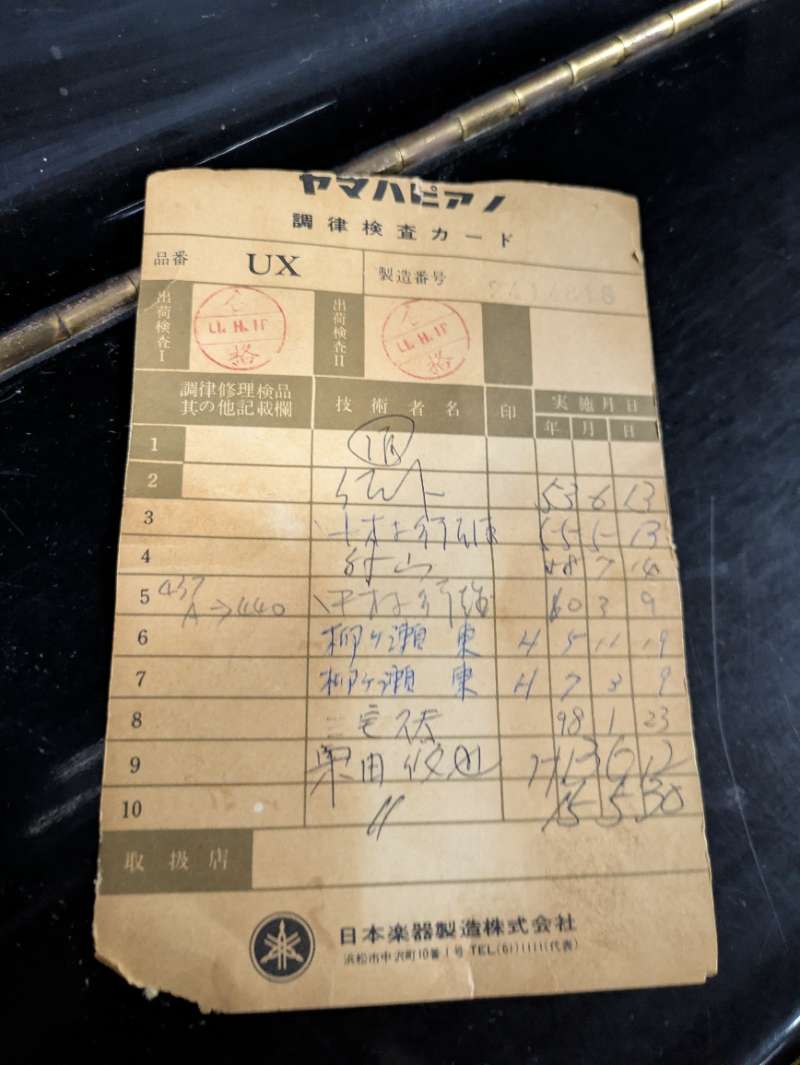 ヤマハピアノ
調律検査カード
品番 UX 製造番号
出荷検査I 合格 出荷検査II 合格
調律修理検品 其の他記載欄 技術者名 印 実施月日
年 月 日
1
2 53 6 13
3 55 5 13
4 村山 58 7 14
5 437 A→440 60 3 9
6 柳ヶ瀬 東 H 5 11 19
7 柳ヶ瀬 東 H 7 3 9
8 三宅 98 1 23
9 栗田 H13 6 12
10 〃 15 5 30
取扱店
日本楽器製造株式会社
浜松市中沢町10番1号 TEL(61)1111(代表)